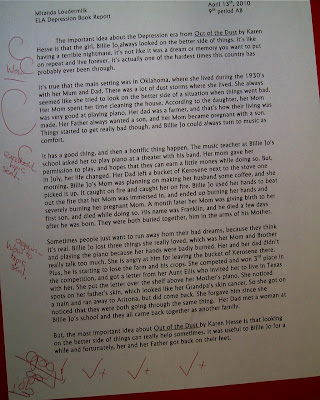 Miranda Loudermilk
April 13th, 2010
ELA Depression Book Report
9th period AB
The important idea about the Depression era from Out of the Dust by Karen
Hesse is that the girl, Billie Jo,always looked on the better side of things. It's like
having a terrible nightmare. It's not like it was a dream or memory you want to put
on repeat and live forever. It's actually one of the hardest times this country has
probably ever been through.
It's true that the main setting was in Oklahoma, where she lived during the 1930's
with her Mum and Dad. There was a lot of dust storms where she lived. She always
seemed like she tried to look on the better side of a situation when things went bad.
Her Mom spent her time cleaning the house. According to the daughter, her Mom
was very good at playing piano. Her dad was a farmer, and that's how their living was
made. Her Father always wanted a son, and her Mom became pregnant with a son.
Things started to get really bad though, and Billie Jo could always turn to music as
comfort.
It has a good thing, and then a horrific thing happen. The music teacher at Billie Jo's
school asked her to play piano at a theater with his band. Her mom gave her
permission to play, and hopes that they can earn a little money while doing so. But,
in July, her life changed. Her Dad left a bucket of Kerosene next to the stove one
morning. Billie Jo's Mum was planning on making her husband some coffee, and she
picked it up. It caught on fire and caught her on fire. Billie Jo used her hands to beat
out the fire that her Mom was immersed in, and ended up burning her hands and
severely burning her pregnant Mom. A month later her Mom was giving birth to her
first son, and died while doing so. His name was Franklin, and he died a few days
after he was born. They were both buried together, him in the arms of his Mother.
Sometimes people just want to run away from their bad dreams, because they think
it's real. Billie Jo lost three things she really loved, which was her Mom and Brother
and playing the piano because her hands were badly burned. Her and her Dad didn't
really talk too much. She is angry at him for leaving the bucket of Kerosene there.
Plus, he is starting to lose the farm and his crops. She competed and won 3rd place in
the competition, and got a letter from her Aunt Ellis who invited her to live in Texas
with her. She put the letter over the shelf above her Mother's piano. She noticed
spots on her father's skin, which looked like her Grandpa's skin cancer. So she got on
a train and ran away to Arizona, but did come back. She forgave him since she
noticed that they were both going through the same thing. Her Dad met a woman at
Billie Jo's school and they all came back together as another family.
But, the most important idea about Out of the Dust by Karen Hesse is that looking
on the better side of things can really help sometimes. It was useful to Billie Jo for a
while and fortunately, her and her Father got back on their feet.